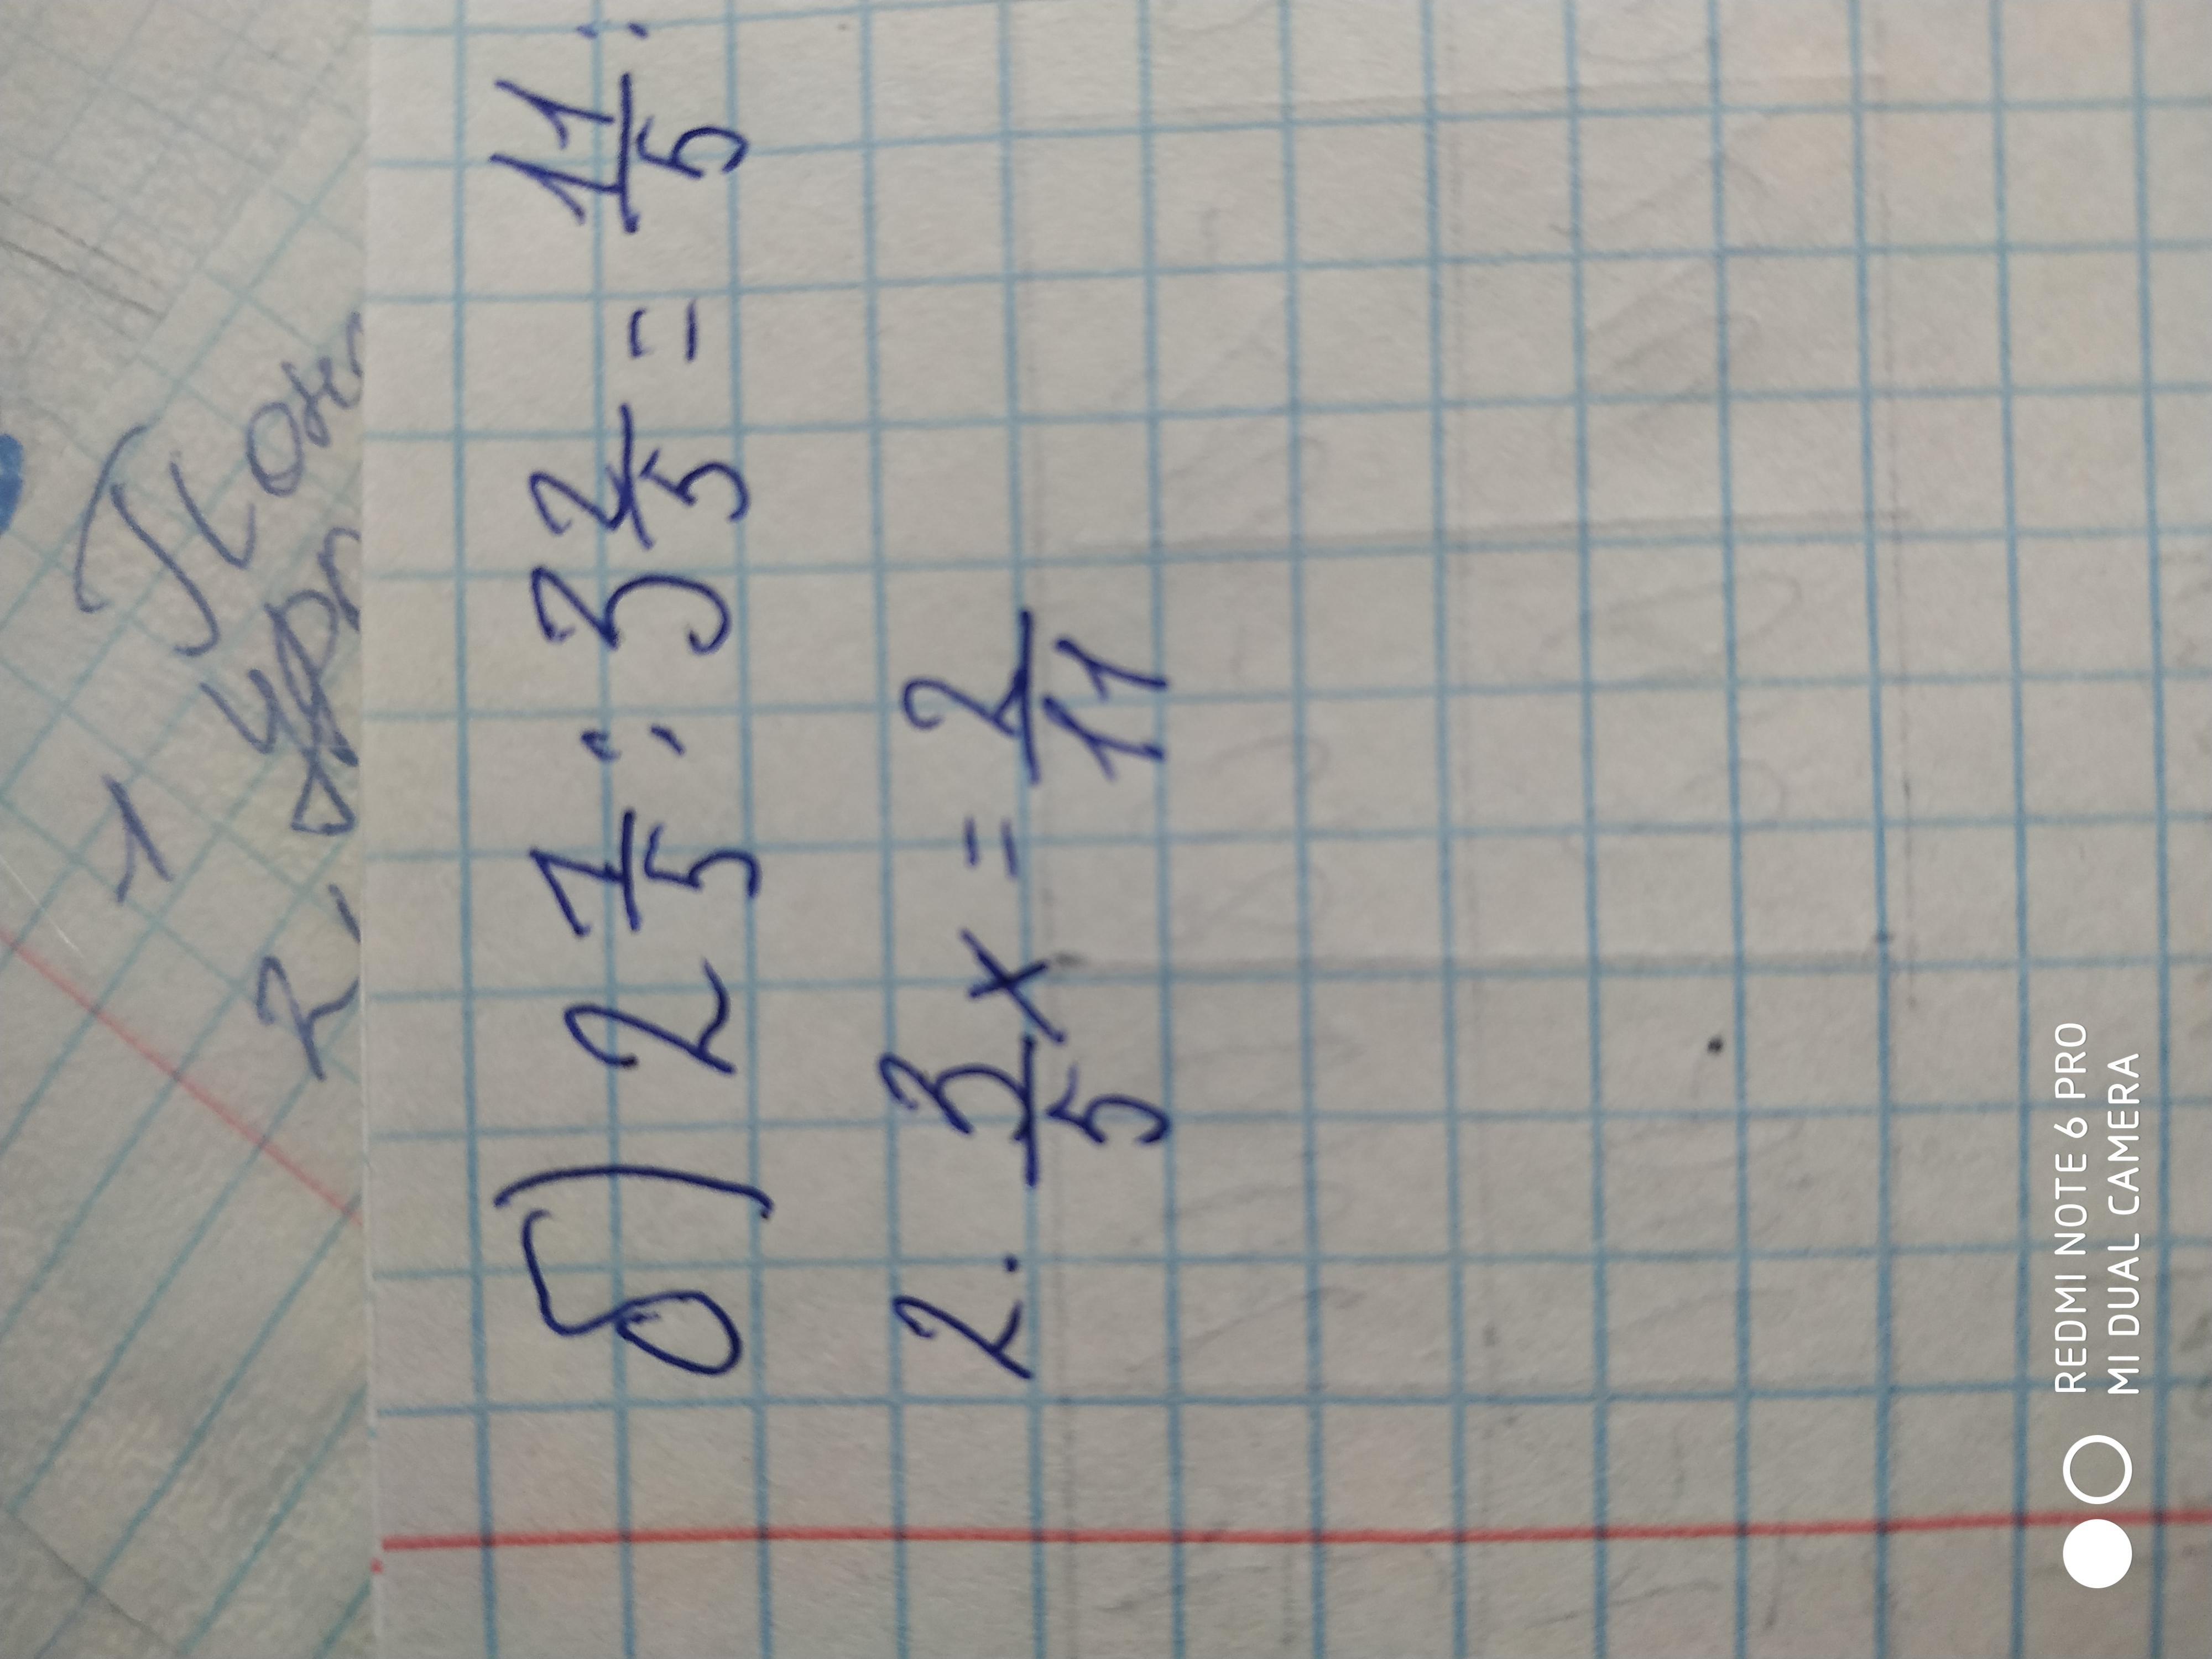 б) 2 1/5 : 3 2/5 = 11/5 :
2. 3/5 x = 2/11
1
2
REDMI NOTE 6 PRO
MI DUAL CAMERA